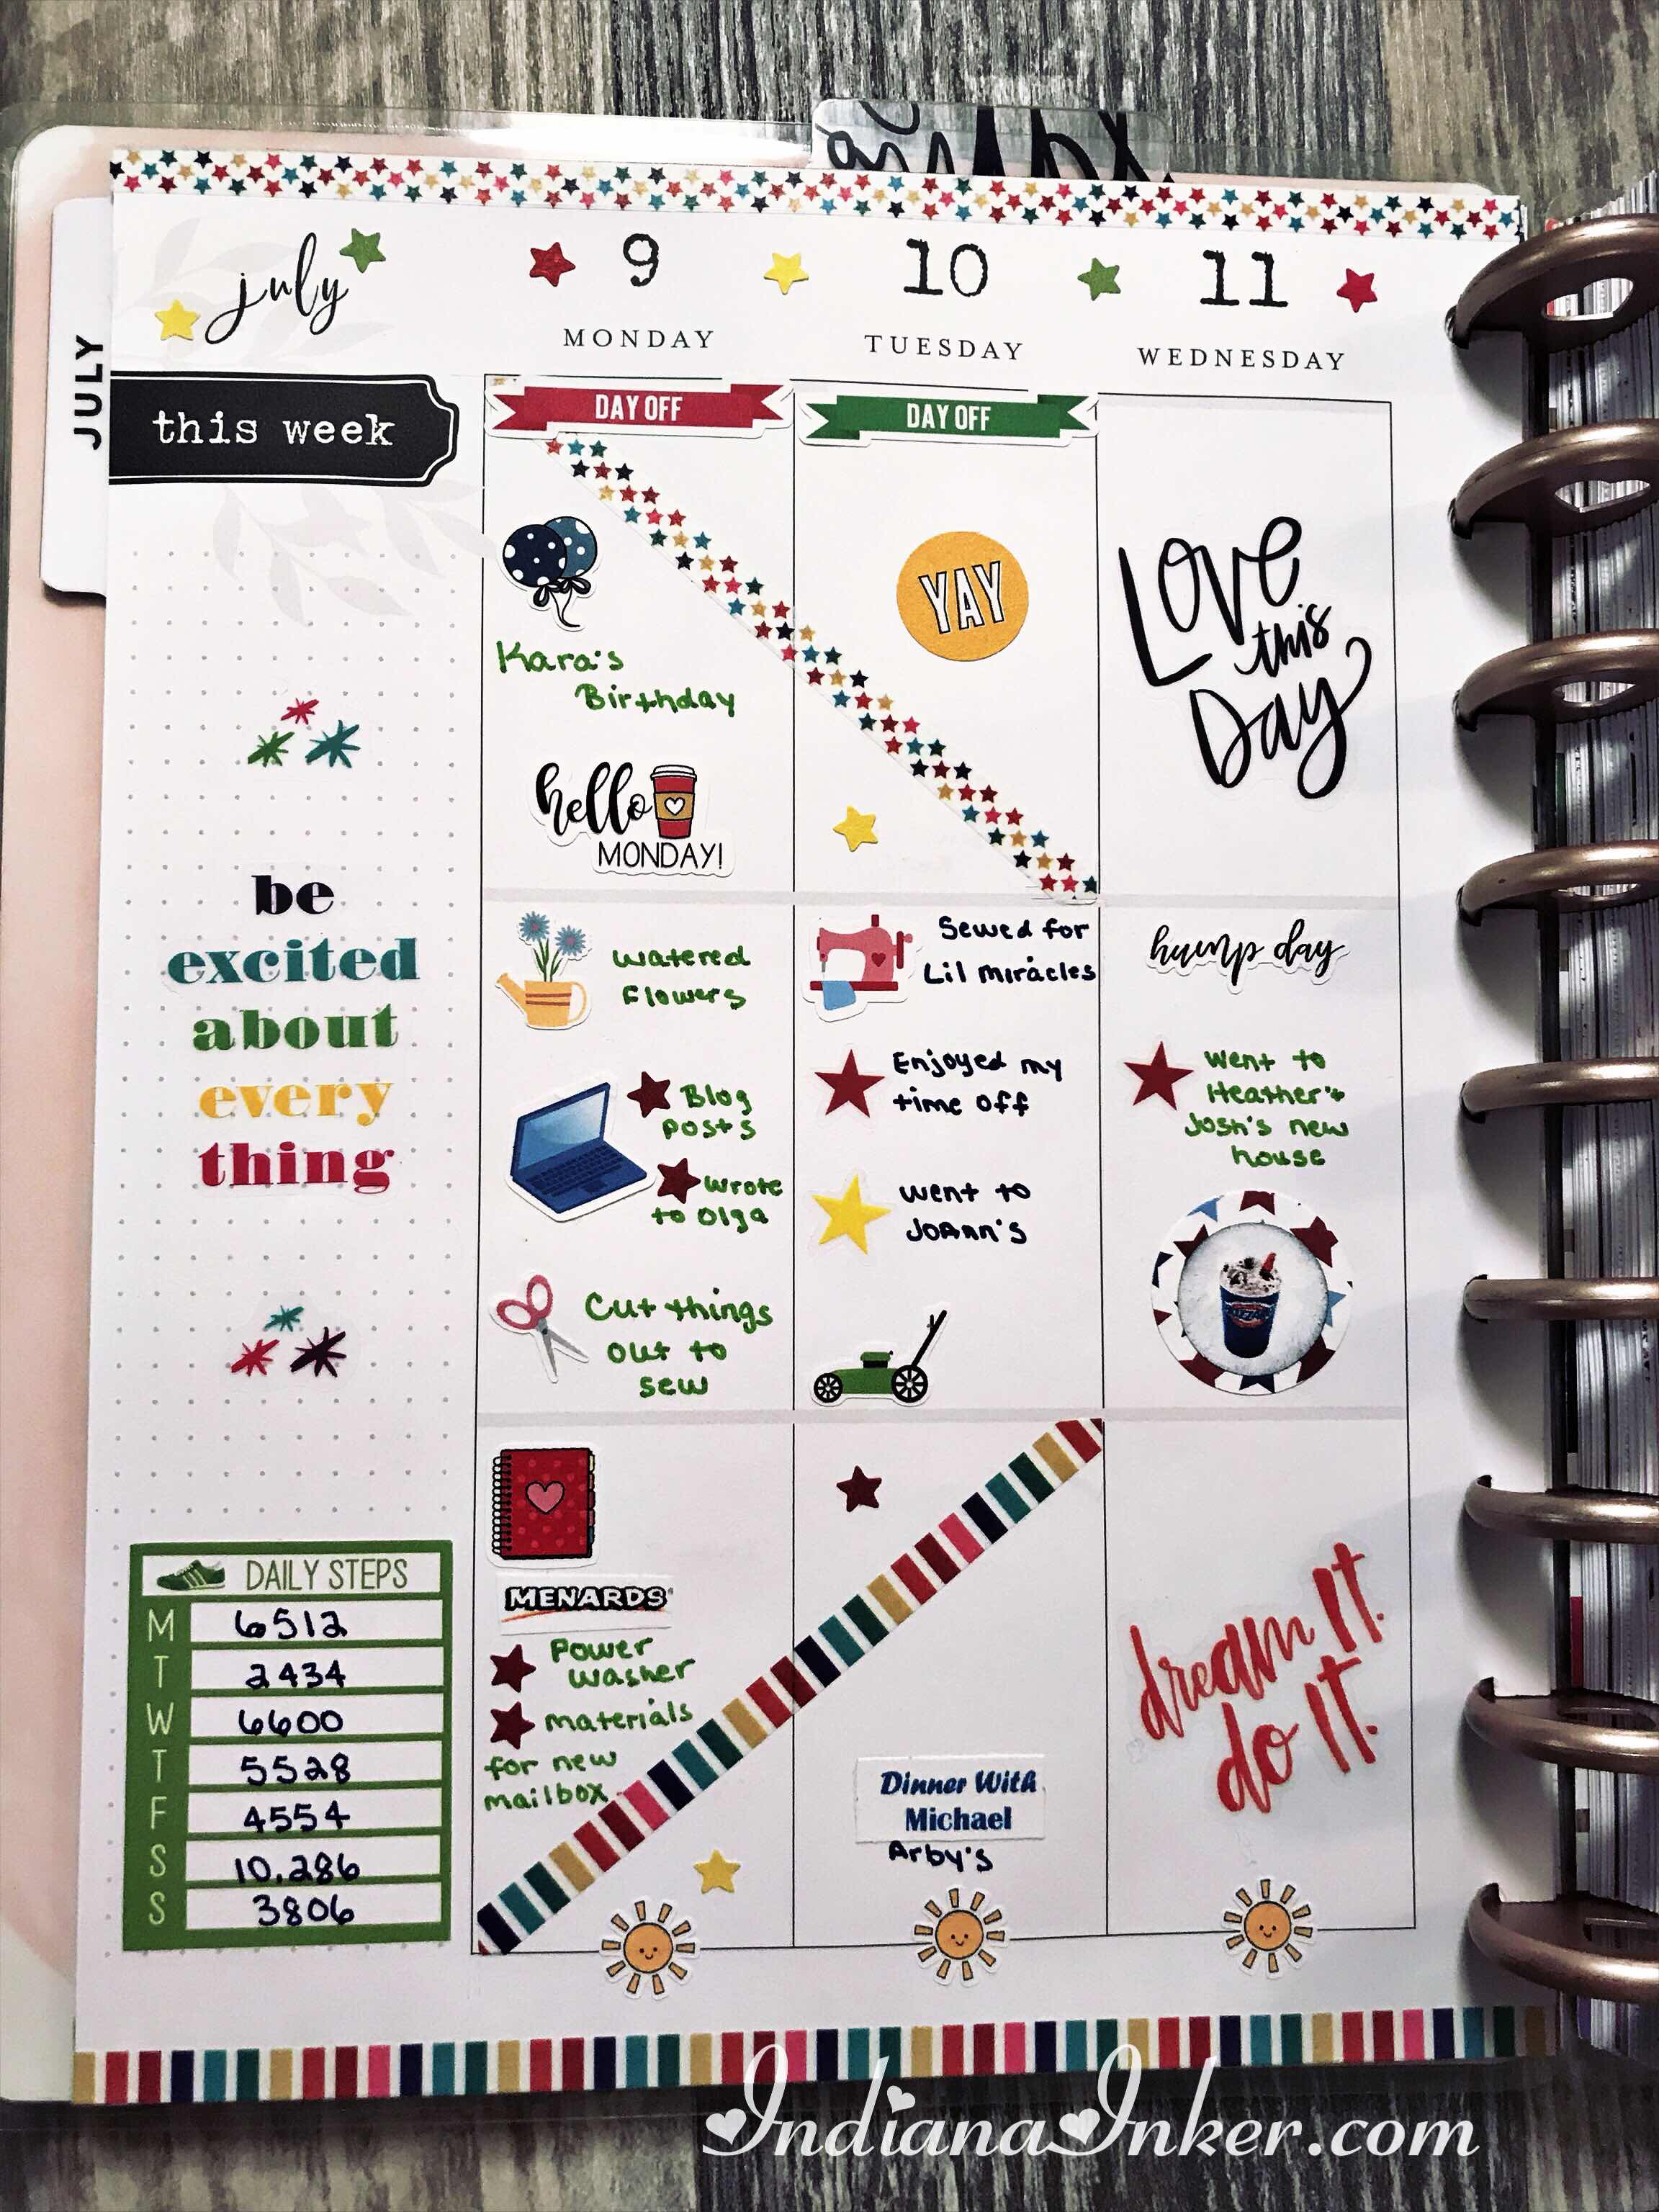 july
9
10
11
MONDAY
TUESDAY
WEDNESDAY
JULY
this week
be
excited
about
every
thing
DAILY STEPS
M 6512
T 2434
W 6600
T 5528
F 4554
S 10,286
S 3806
DAY OFF
Kara's
Birthday
hello
MONDAY!
watered
Flowers
Blog
posts
wrote
to Olga
Cut things
out to
sew
MENARDS
Power
washer
materials
for new
mailbox
DAY OFF
YAY
Sewed for
Lil miracles
Enjoyed my
time off
went to
JoAnn's
Dinner With
Michael
Arby's
Love
this
Day
hump day
went to
Heather +
Josh's new
house
dream It.
do It.
IndianaInker.com